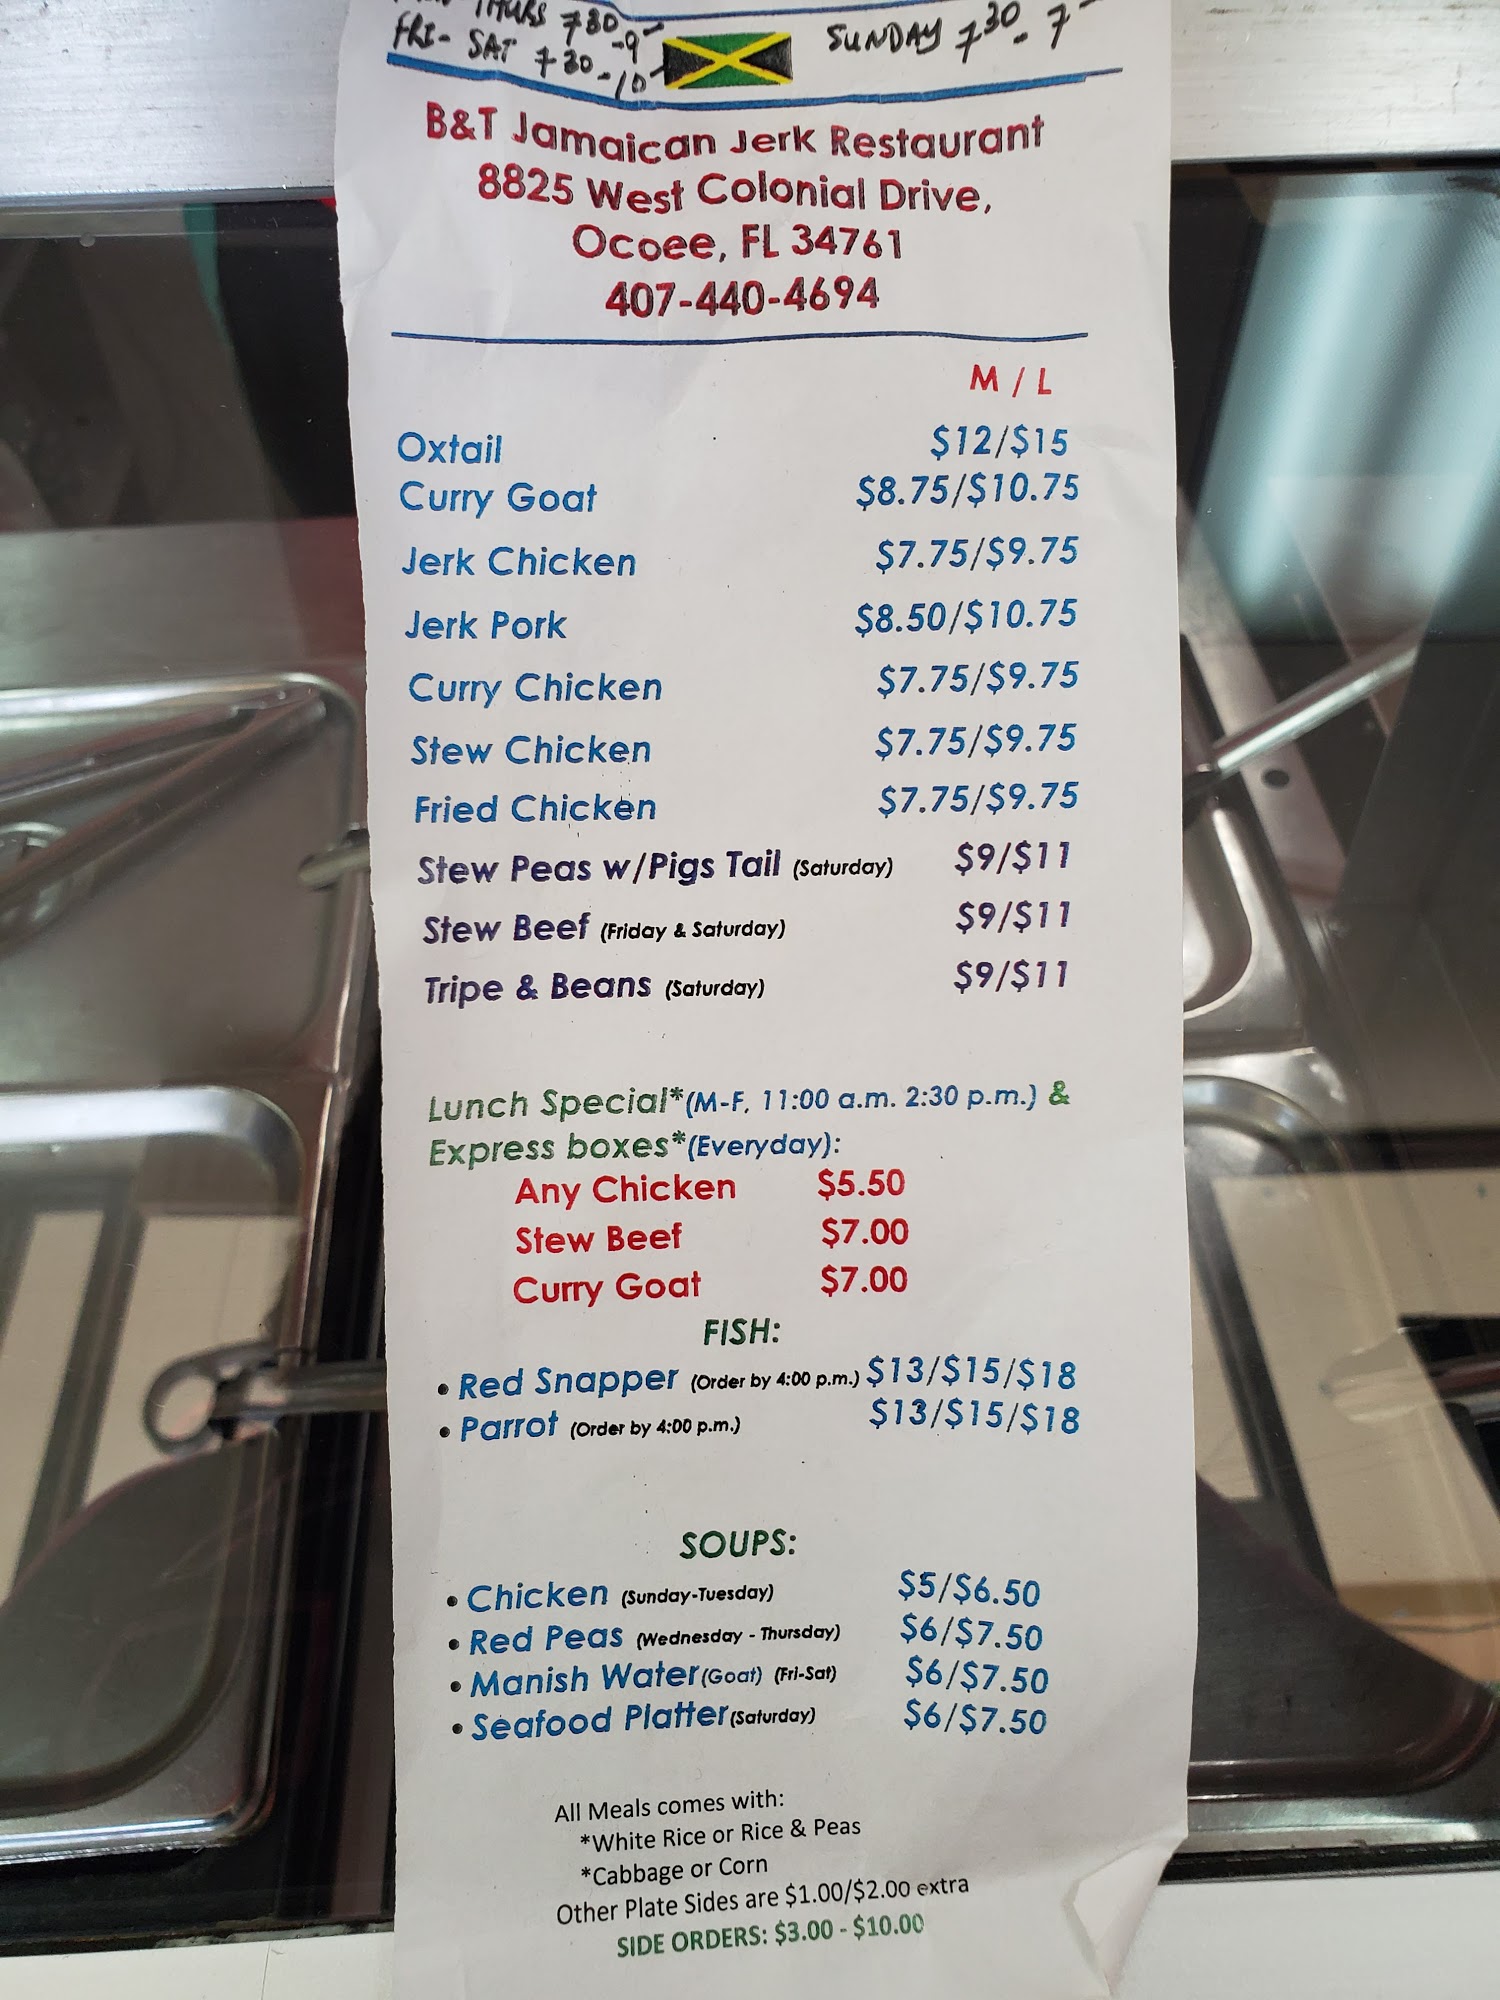 THURS 730-9
FRI- SAT 730-10
SUNDAY 730-7
B&T Jamaican Jerk Restaurant
8825 West Colonial Drive,
Ocoee, FL 34761
407-440-4694
M / L
Oxtail $12/$15
Curry Goat $8.75/$10.75
Jerk Chicken $7.75/$9.75
Jerk Pork $8.50/$10.75
Curry Chicken $7.75/$9.75
Stew Chicken $7.75/$9.75
Fried Chicken $7.75/$9.75
Stew Peas w/Pigs Tail (Saturday) $9/$11
Stew Beef (Friday & Saturday) $9/$11
Tripe & Beans (Saturday) $9/$11
Lunch Special*(M-F, 11:00 a.m. 2:30 p.m.) &
Express boxes*(Everyday):
Any Chicken $5.50
Stew Beef $7.00
Curry Goat $7.00
FISH:
• Red Snapper (Order by 4:00 p.m.) $13/$15/$18
• Parrot (Order by 4:00 p.m.) $13/$15/$18
SOUPS:
• Chicken (Sunday-Tuesday) $5/$6.50
• Red Peas (Wednesday - Thursday) $6/$7.50
• Manish Water(Goat) (Fri-Sat) $6/$7.50
• Seafood Platter(Saturday) $6/$7.50
All Meals comes with:
*White Rice or Rice & Peas
*Cabbage or Corn
Other Plate Sides are $1.00/$2.00 extra
SIDE ORDERS: $3.00 - $10.00